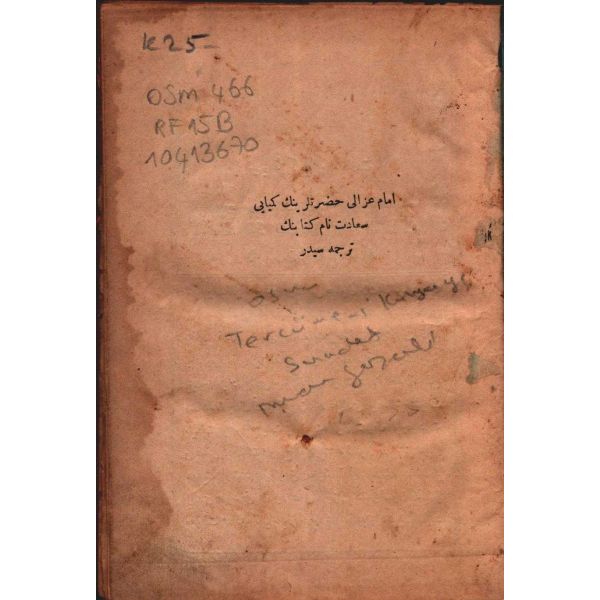 K25-
OSM 466
RF15B
10413670
امام غزالی حضرتلرینك کیمیایی
سعادت نام کتابنك
ترجمه سیدر
Tercüme-i Kimya-yı
Saadet